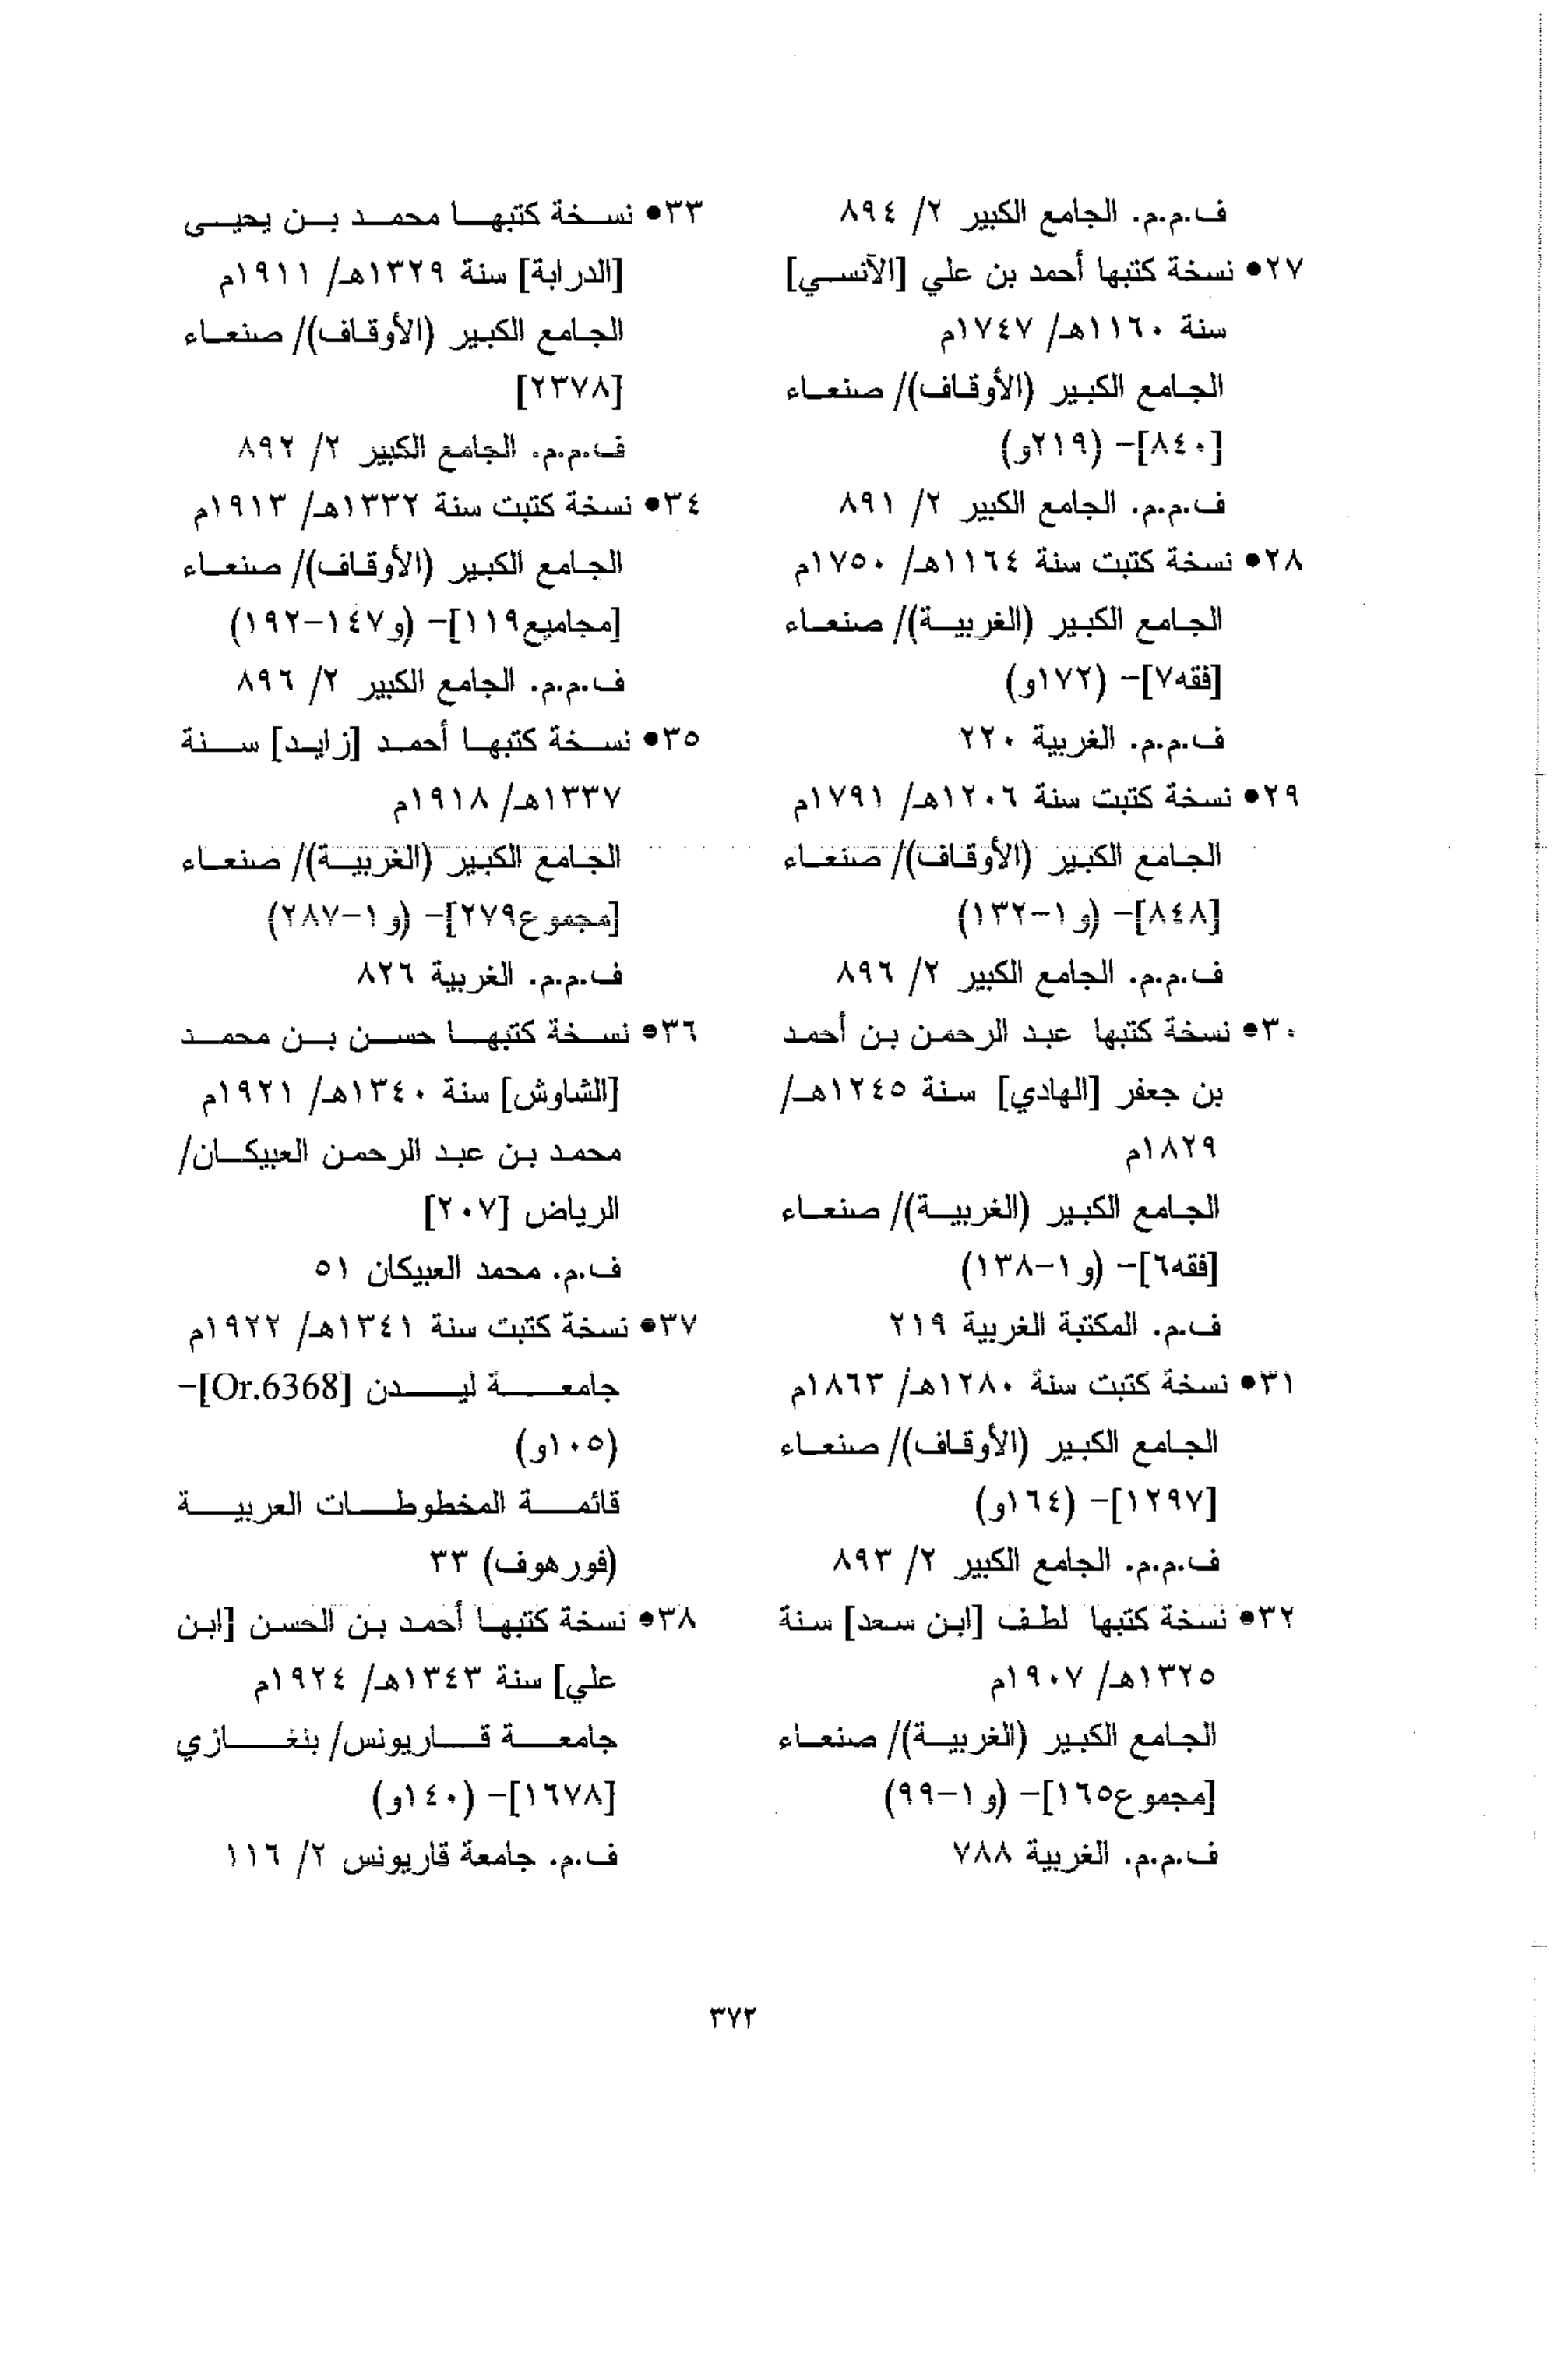 ف.م.م. الجامع الكبير ٢/ ٨٩٤
٢٧• نسخة كتبها أحمد بن علي [الآنسي]
سنة ١١٦٠هـ/ ١٧٤٧م
الجامع الكبير (الأوقاف)/ صنعاء
[٨٤٠]- (٢١٩و)
ف.م.م. الجامع الكبير ٢/ ٨٩١
٢٨• نسخة كتبت سنة ١١٦٤هـ/ ١٧٥٠م
الجامع الكبير (الغربية)/ صنعاء
[فقه٧]- (١٧٢و)
ف.م.م. الغربية ٢٢٠
٢٩• نسخة كتبت سنة ١٢٠٦هـ/ ١٧٩١م
الجامع الكبير (الأوقاف)/ صنعاء
[٨٤٨]- (و١-١٣٢)
ف.م.م. الجامع الكبير ٢/ ٨٩٦
٣٠• نسخة كتبها عبد الرحمن بن أحمد
بن جعفر [الهادي] سنة ١٢٤٥هـ/
١٨٢٩م
الجامع الكبير (الغربية)/ صنعاء
[فقه٦]- (و١-١٣٨)
ف.م. المكتبة الغربية ٢١٩
٣١• نسخة كتبت سنة ١٢٨٠هـ/ ١٨٦٣م
الجامع الكبير (الأوقاف)/ صنعاء
[١٢٩٧]- (١٦٤و)
ف.م.م. الجامع الكبير ٢/ ٨٩٣
٣٢• نسخة كتبها لطف [ابن سعد] سنة
١٣٢٥هـ/ ١٩٠٧م
الجامع الكبير (الغربية)/ صنعاء
[مجموع١٦٥]- (و١-٩٩)
ف.م.م. الغربية ٧٨٨
٣٣• نسخة كتبها محمد بن يحيى
[الدرابة] سنة ١٣٢٩هـ/ ١٩١١م
الجامع الكبير (الأوقاف)/ صنعاء
[٢٣٧٨]
ف.م.م. الجامع الكبير ٢/ ٨٩٢
٣٤• نسخة كتبت سنة ١٣٣٢هـ/ ١٩١٣م
الجامع الكبير (الأوقاف)/ صنعاء
[مجاميع١١٩]- (و١٤٧-١٩٢)
ف.م.م. الجامع الكبير ٢/ ٨٩٦
٣٥• نسخة كتبها أحمد [زايد] سنة
١٣٣٧هـ/ ١٩١٨م
الجامع الكبير (الغربية)/ صنعاء
[مجموع٢٧٩]- (و١-٢٨٧)
ف.م.م. الغربية ٨٢٦
٣٦• نسخة كتبها حسن بن محمد
[الشاوش] سنة ١٣٤٠هـ/ ١٩٢١م
محمد بن عبد الرحمن العبيكان/
الرياض [٢٠٧]
ف.م. محمد العبيكان ٥١
٣٧• نسخة كتبت سنة ١٣٤١هـ/ ١٩٢٢م
جامعة ليدن [Or.6368]-
(١٠٥و)
قائمة المخطوطات العربية
(فورهوف) ٣٣
٣٨• نسخة كتبها أحمد بن الحسن [ابن
علي] سنة ١٣٤٣هـ/ ١٩٢٤م
جامعة قاريونس/ بنغازي
[١٦٧٨]- (١٤٠و)
ف.م. جامعة قاريونس ٢/ ١١٦
٣٧٢